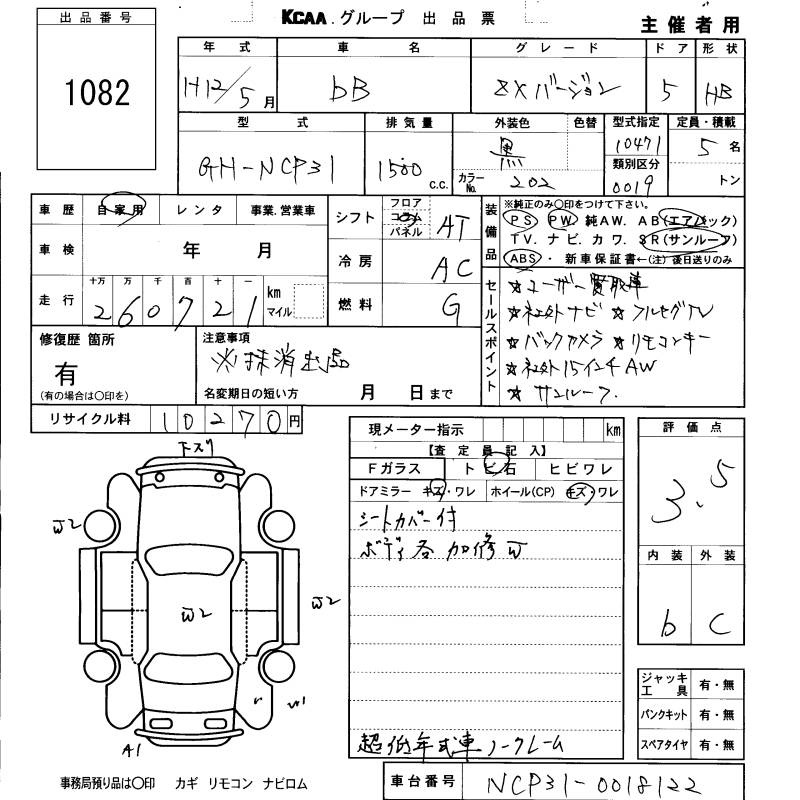 出品番号
1082
KCAA.グループ 出品票
主催者用
年式 車名 グレード ドア 形状
H12/5月 bB ZXバージョン 5 HB
型式 排気量 外装色 色替 型式指定 定員・積載
GH-NCP31 1500 c.c. 黒 10471 5名
カラーNo. 202 類別区分 0019 トン
車歴 自家用 レンタ 事業.営業車
車検 年 月
走行 十万 万 千 百 十 一 km マイル
260721
シフト フロア コラム パネル AT
冷房 AC
燃料 G
装備品
※純正のみ〇印をつけて下さい。
PS PW 純AW. AB(エアバック)
TV. ナビ. カワ. SR(サンルーフ)
ABS・新車保証書←(注)後日送りのみ
セールスポイント
☆ユーザー買取車
☆社外ナビ ☆フルセグTV
☆バックカメラ ☆リモコンキー
☆社外15インチAW
☆サンルーフ.
修復歴 箇所
有
(有の場合は〇印を)
注意事項
※抹消出品
名変期日の短い方 月 日まで
リサイクル料 10270円
現メーター指示 km
【査定員記入】
Fガラス トビ石 ヒビワレ
ドアミラー キズ・ワレ ホイール(CP) キズ・ワレ
シートカバー付
ボディ各加修W
超低年式車ノークレーム
評価点
3.5
内装 外装
b C
ジャッキ工具 有・無
パンクキット 有・無
スペアタイヤ 有・無
下スリ
W2
W2
W2
W1
A1
事務局預り品は〇印 カギ リモコン ナビロム
車台番号 NCP31-0018122